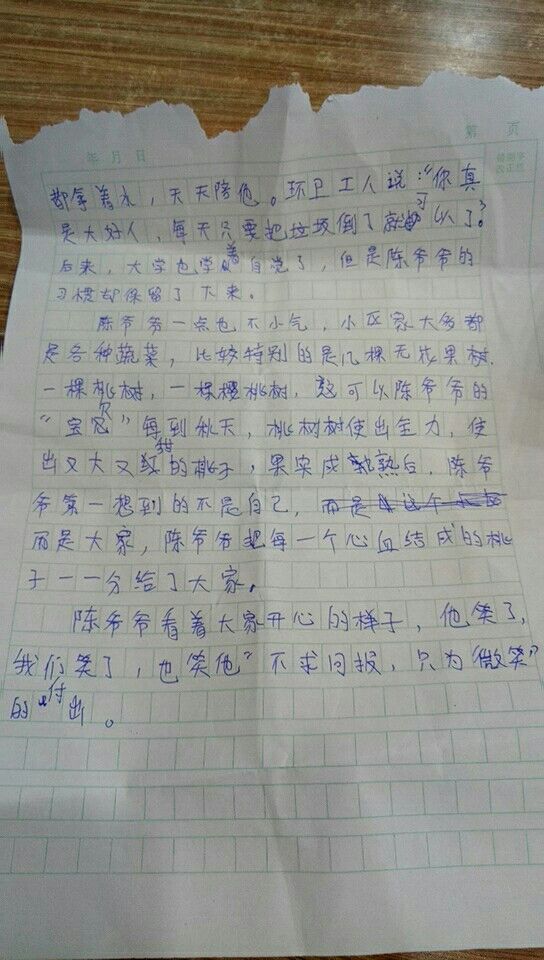 第 页
年 月 日
都拿着水，天天陪他。环卫工人说："你真
是大好人，每天只要把垃圾倒了就可以了。"
后来，大学也学着自觉了，但是陈爷爷的
习惯却保留了下来。
陈爷爷一点也不小气，小区家大多都
是各种蔬菜，比较特别的是几棵无花果树，
一棵桃树，一棵樱桃树，可以陈爷爷的
"宝贝"每到秋天，桃树树使出全力，使
出又大又甜的桃子，果实成熟后，陈爷
爷第一想到的不是自己，而是
而是大家，陈爷爷把每一个心血结成的桃
子一一分给了大家。
陈爷爷看着大家开心的样子，他笑了，
我们笑了，也笑他"不求回报，只为"微笑"
的"付出。